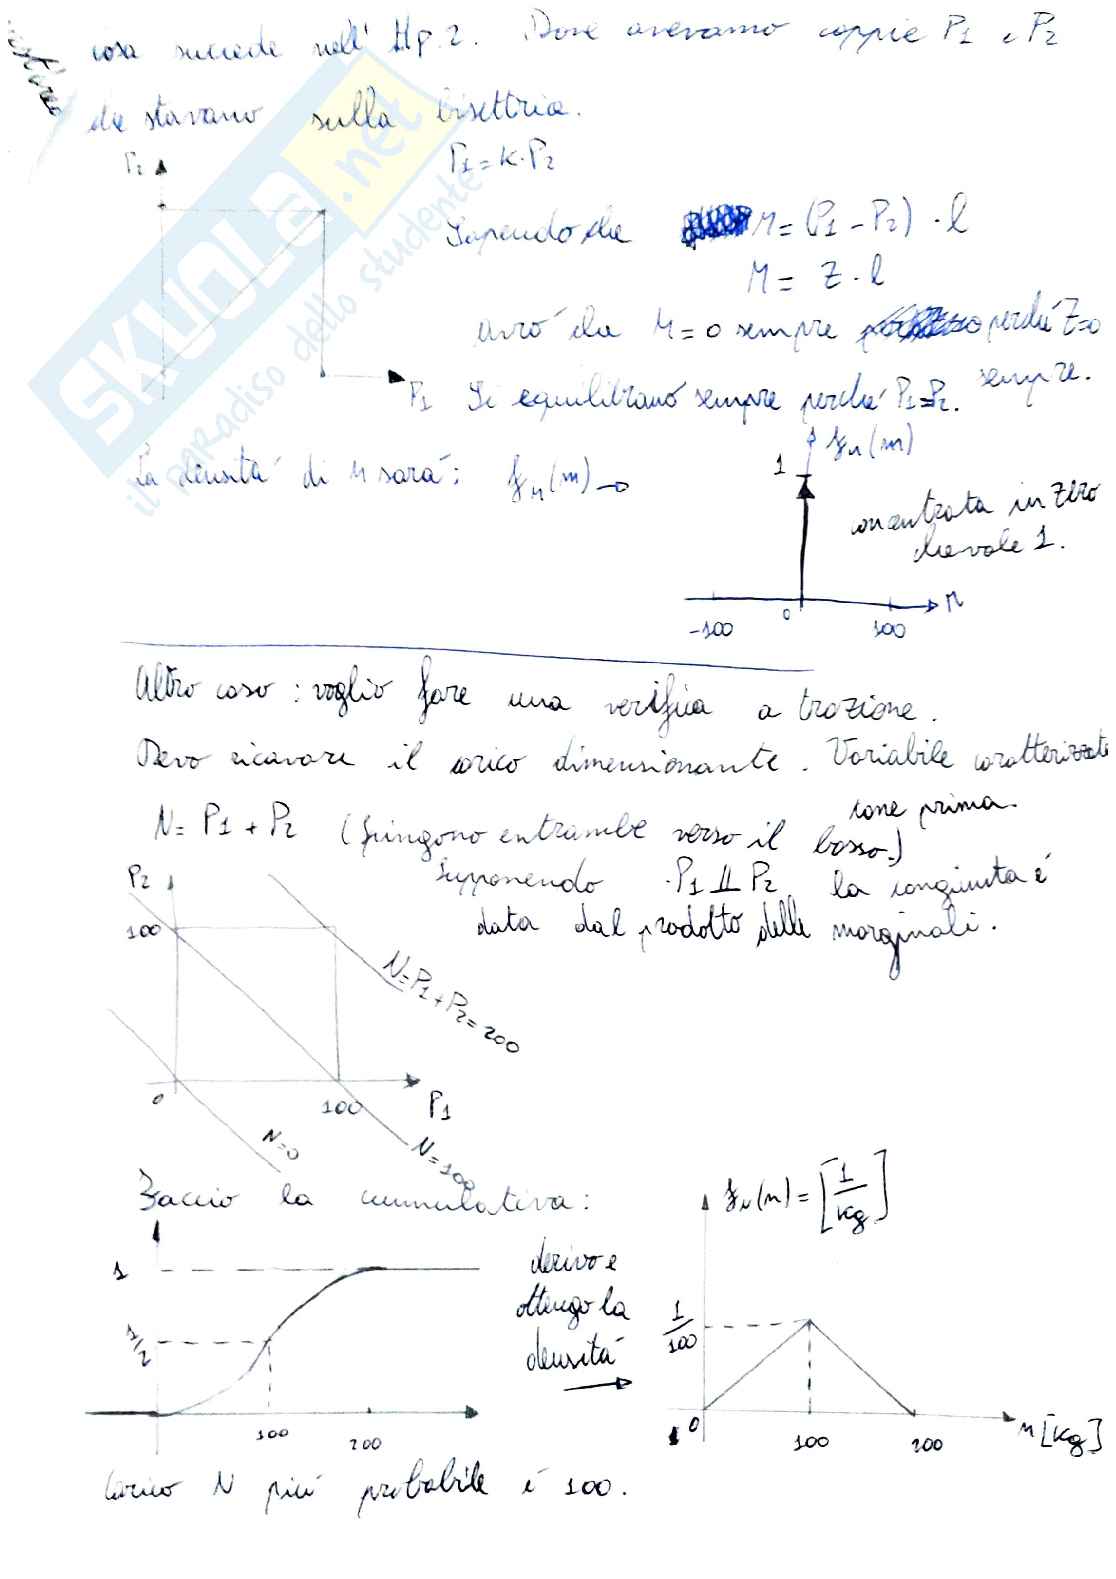 cosa succede nell' Hp. 2. Dove avevamo coppie P1 e P2
che stavano sulla bisettrice.
P2
P1 = K · P2
Sapendo che M = (P1 - P2) · l
M = Z · l
avrò che M = 0 sempre perché Z=0
sempre.
P1
Si equilibrano sempre perché P1=P2.
La densità di M sarà: fM(m) →
fM(m)
1
concentrata in zero
che vale 1.
-100
0
100
M
Altro caso: voglio fare una verifica a trazione.
Devo ricavare il carico dimensionante. Variabile caratterizzate
come prima.
N = P1 + P2 (spingono entrambe verso il basso.)
Supponendo P1 ⫫ P2 la congiunta è
data dal prodotto delle marginali.
P2
100
N=P1+P2=200
0
100
P1
N=0
N=100
Faccio la cumulativa:
1
1/2
100
200
derivo e
ottengo la
densità
→
fN(n) = [1/kg]
1/100
0
100
200
n [kg]
Carico N più probabile è 100.
SKUOLA.net
il paradiso dello studente